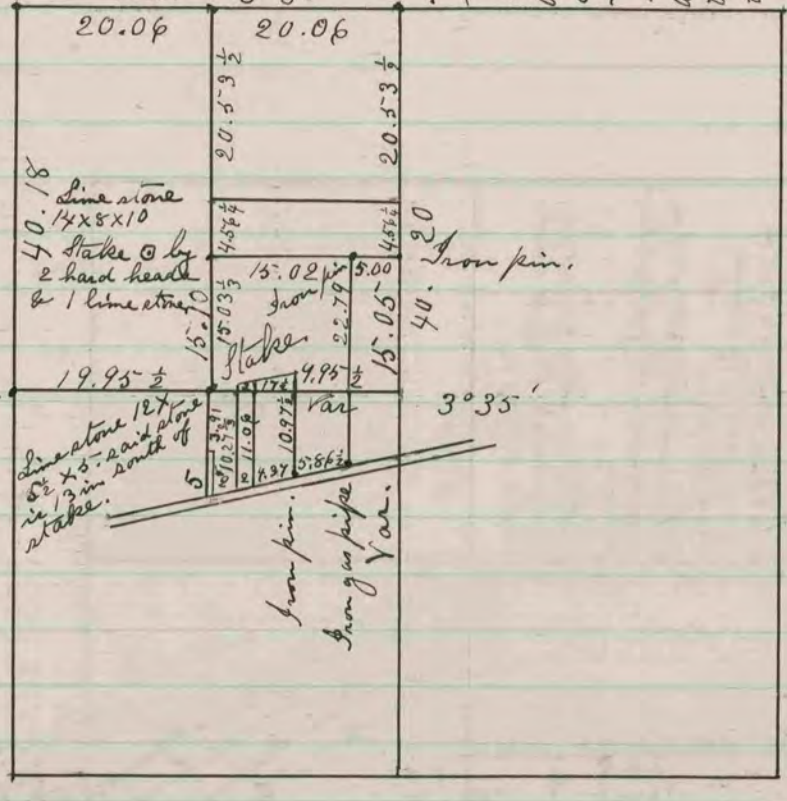 20.06
20.06
20.53 1/2
20.53 1/2
40.18
Lime stone
14x8x10
Stake ⊙ by
2 hard heads
& 1 lime stone
4.56 1/4
4.56 1/4
40.20
Iron pin.
15.02
Iron pin
5.00
15.10
15.03 1/3
22.79
15.05
Stake
19.95 1/2
4.95 1/2
Var
3°35'
Lime stone 12x
5 1/2 x 5 - said stone
is 13 in south of
stake.
5
3.91
10.27
11.06
10.97 1/2
2
4.37
5.86 1/2
Iron pin.
Iron gas pipe
Var.